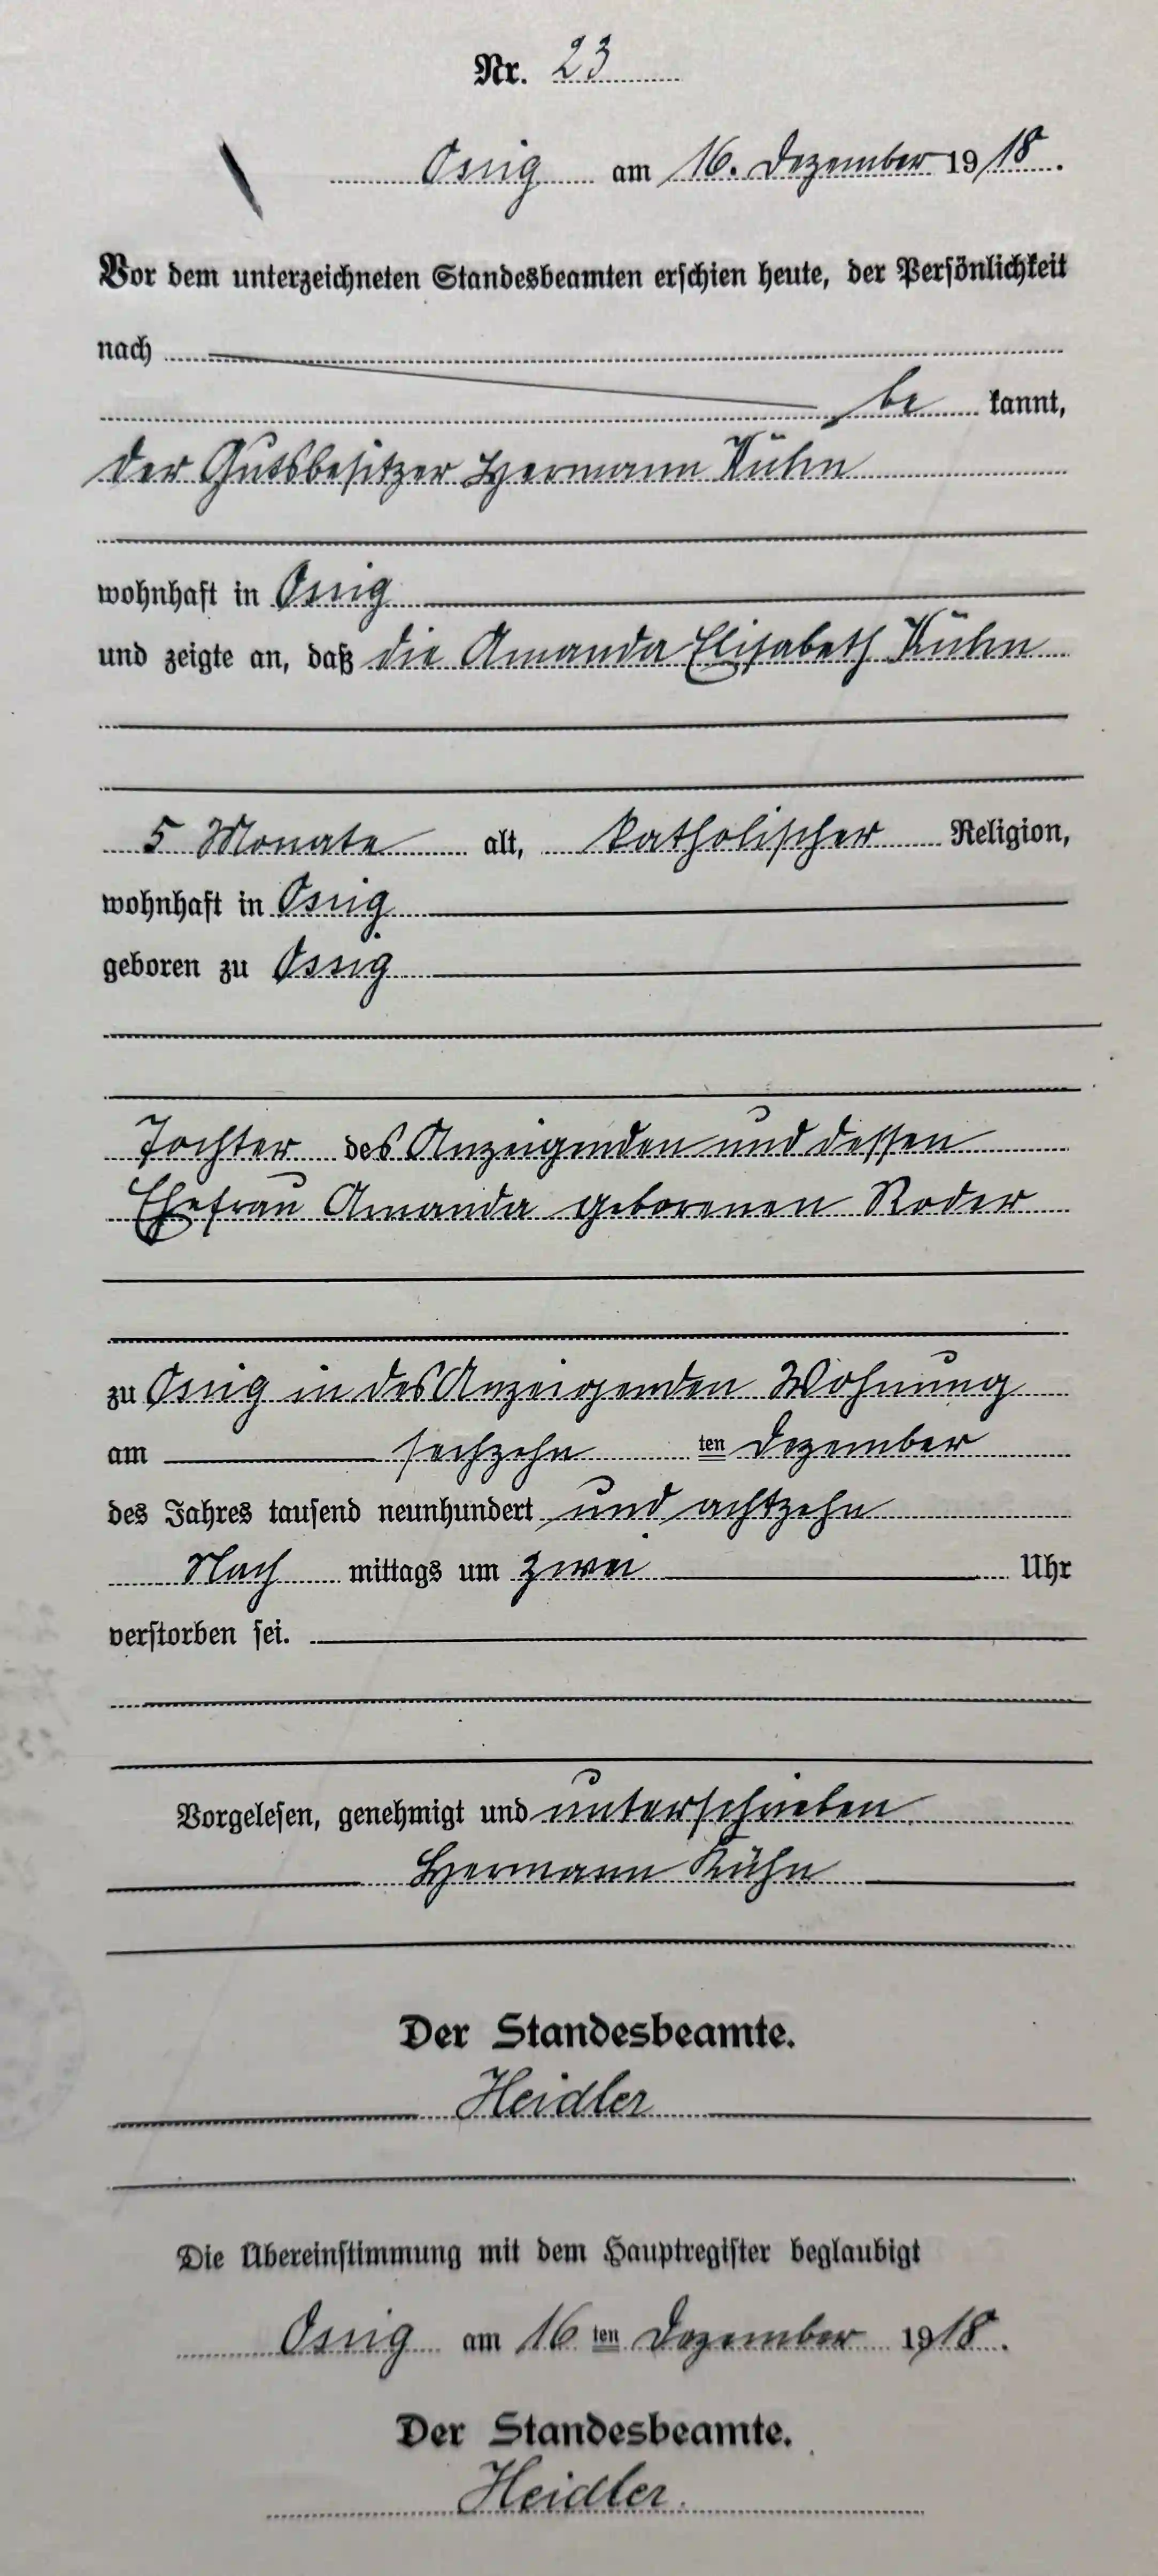 Nr. 23
Ossig am 16. Dezember 1918.
Vor dem unterzeichneten Standesbeamten erschien heute, der Persönlichkeit
nach
be kannt,
der Gutsbesitzer Hermann Kühn
wohnhaft in Ossig
und zeigte an, daß die Amanda Elisabeth Kühn
5 Monate alt, katholischer Religion,
wohnhaft in Ossig
geboren zu Ossig
Tochter des Anzeigenden und dessen
Ehefrau Amanda geborenen Roder
zu Ossig in des Anzeigenden Wohnung
am sechzehn ten Dezember
des Jahres tausend neunhundert und achtzehn
Nach mittags um zwei Uhr
verstorben sei.
Vorgelesen, genehmigt und unterschrieben
Hermann Kühn
Der Standesbeamte.
Heidler
Die Übereinstimmung mit dem Hauptregister beglaubigt
Ossig am 16 ten Dezember 1918.
Der Standesbeamte.
Heidler.